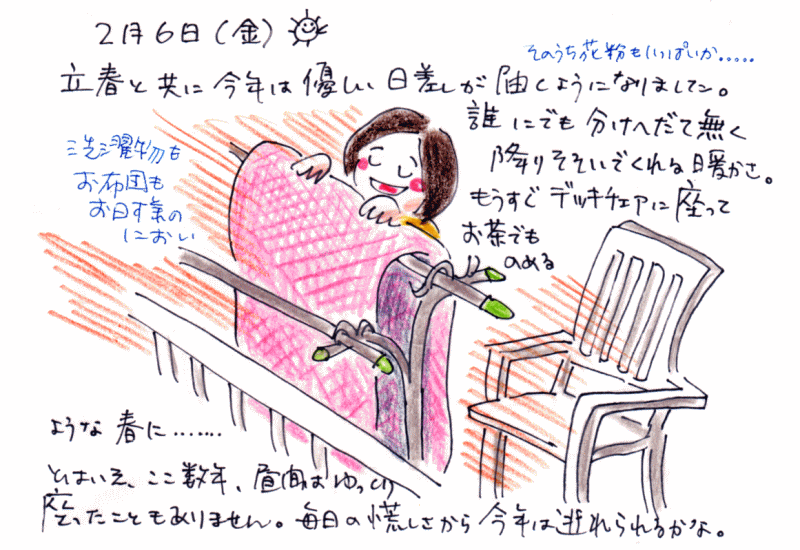 2月6日(金)
そのうち花粉もいっぱいか.....
立春と共に今年は優しい日差しが届くようになりました。
誰にでも分けへだて無く
降りそそいでくれる暖かさ。
もうすぐデッキチェアに座って
お茶でも
のめる
洗濯物も
お布団も
お日す気の
におい
ような春に.......
とはいえ、ここ数年、昼間はゆっくり
座ったこともありません。毎日の慌しさから今年は逃れられるかな。